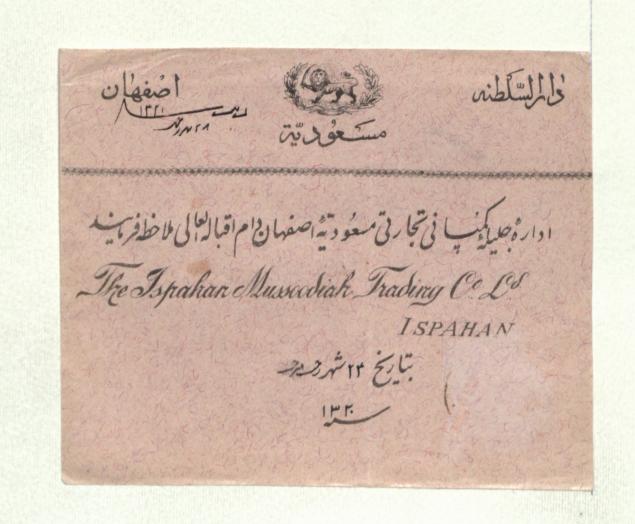 دارالسّلطنه
اصفهان
۱۳۲۱
مسعودیّة
ادارۀ جلیلۀ کمپانی تجارتی مسعودیّۀ اصفهان دام اقباله العالی ملاحظه فرمایند
The Ispahan Mussoodiah Trading Co Ld
ISPAHAN
بتاریخ ۲۴ شهر رجب
سنه ۱۳۲۰